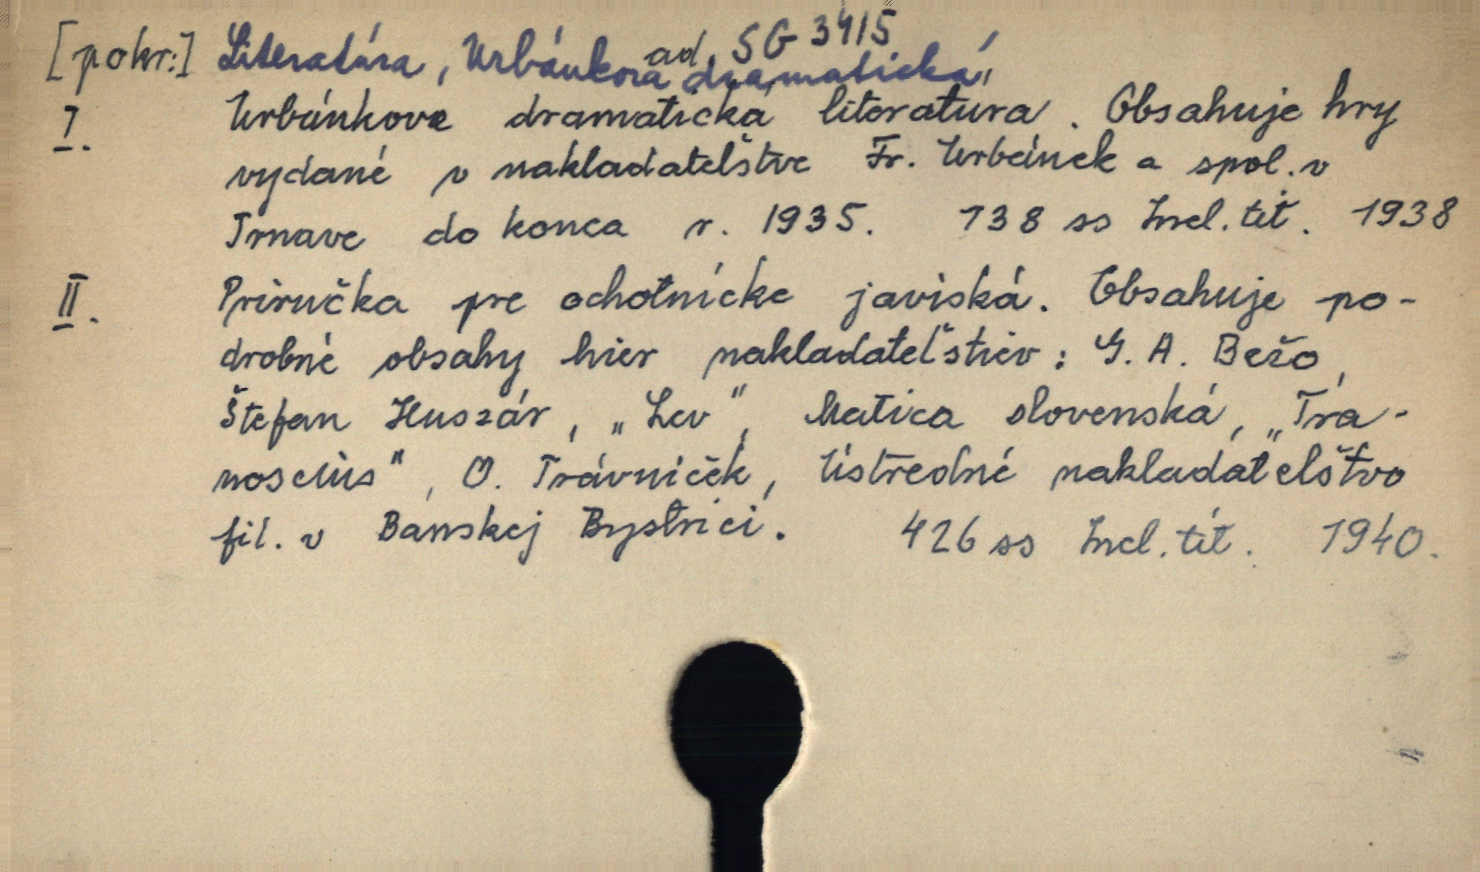 ad SG 3415
[pokr:] Literatúra, Urbánkova dramatická,
I. Urbánkova dramatická literatura. Obsahuje hry
vydané v nakladatelštve Fr. Urbánek a spol. v
Trnave do konca r. 1935. 138 ss Incl. tit. 1938
II. Príručka pre ochotnícke javiská. Obsahuje po-
drobné obsahy hier nakladateľstiev: G. A. Bežo,
Štefan Huszár, „Lev", Matica slovenská, „Tra-
noscius", O. Trávniček, Ústredné nakladatelštvo
fil. v Banskej Bystrici. 426 ss Incl. tit. 1940.